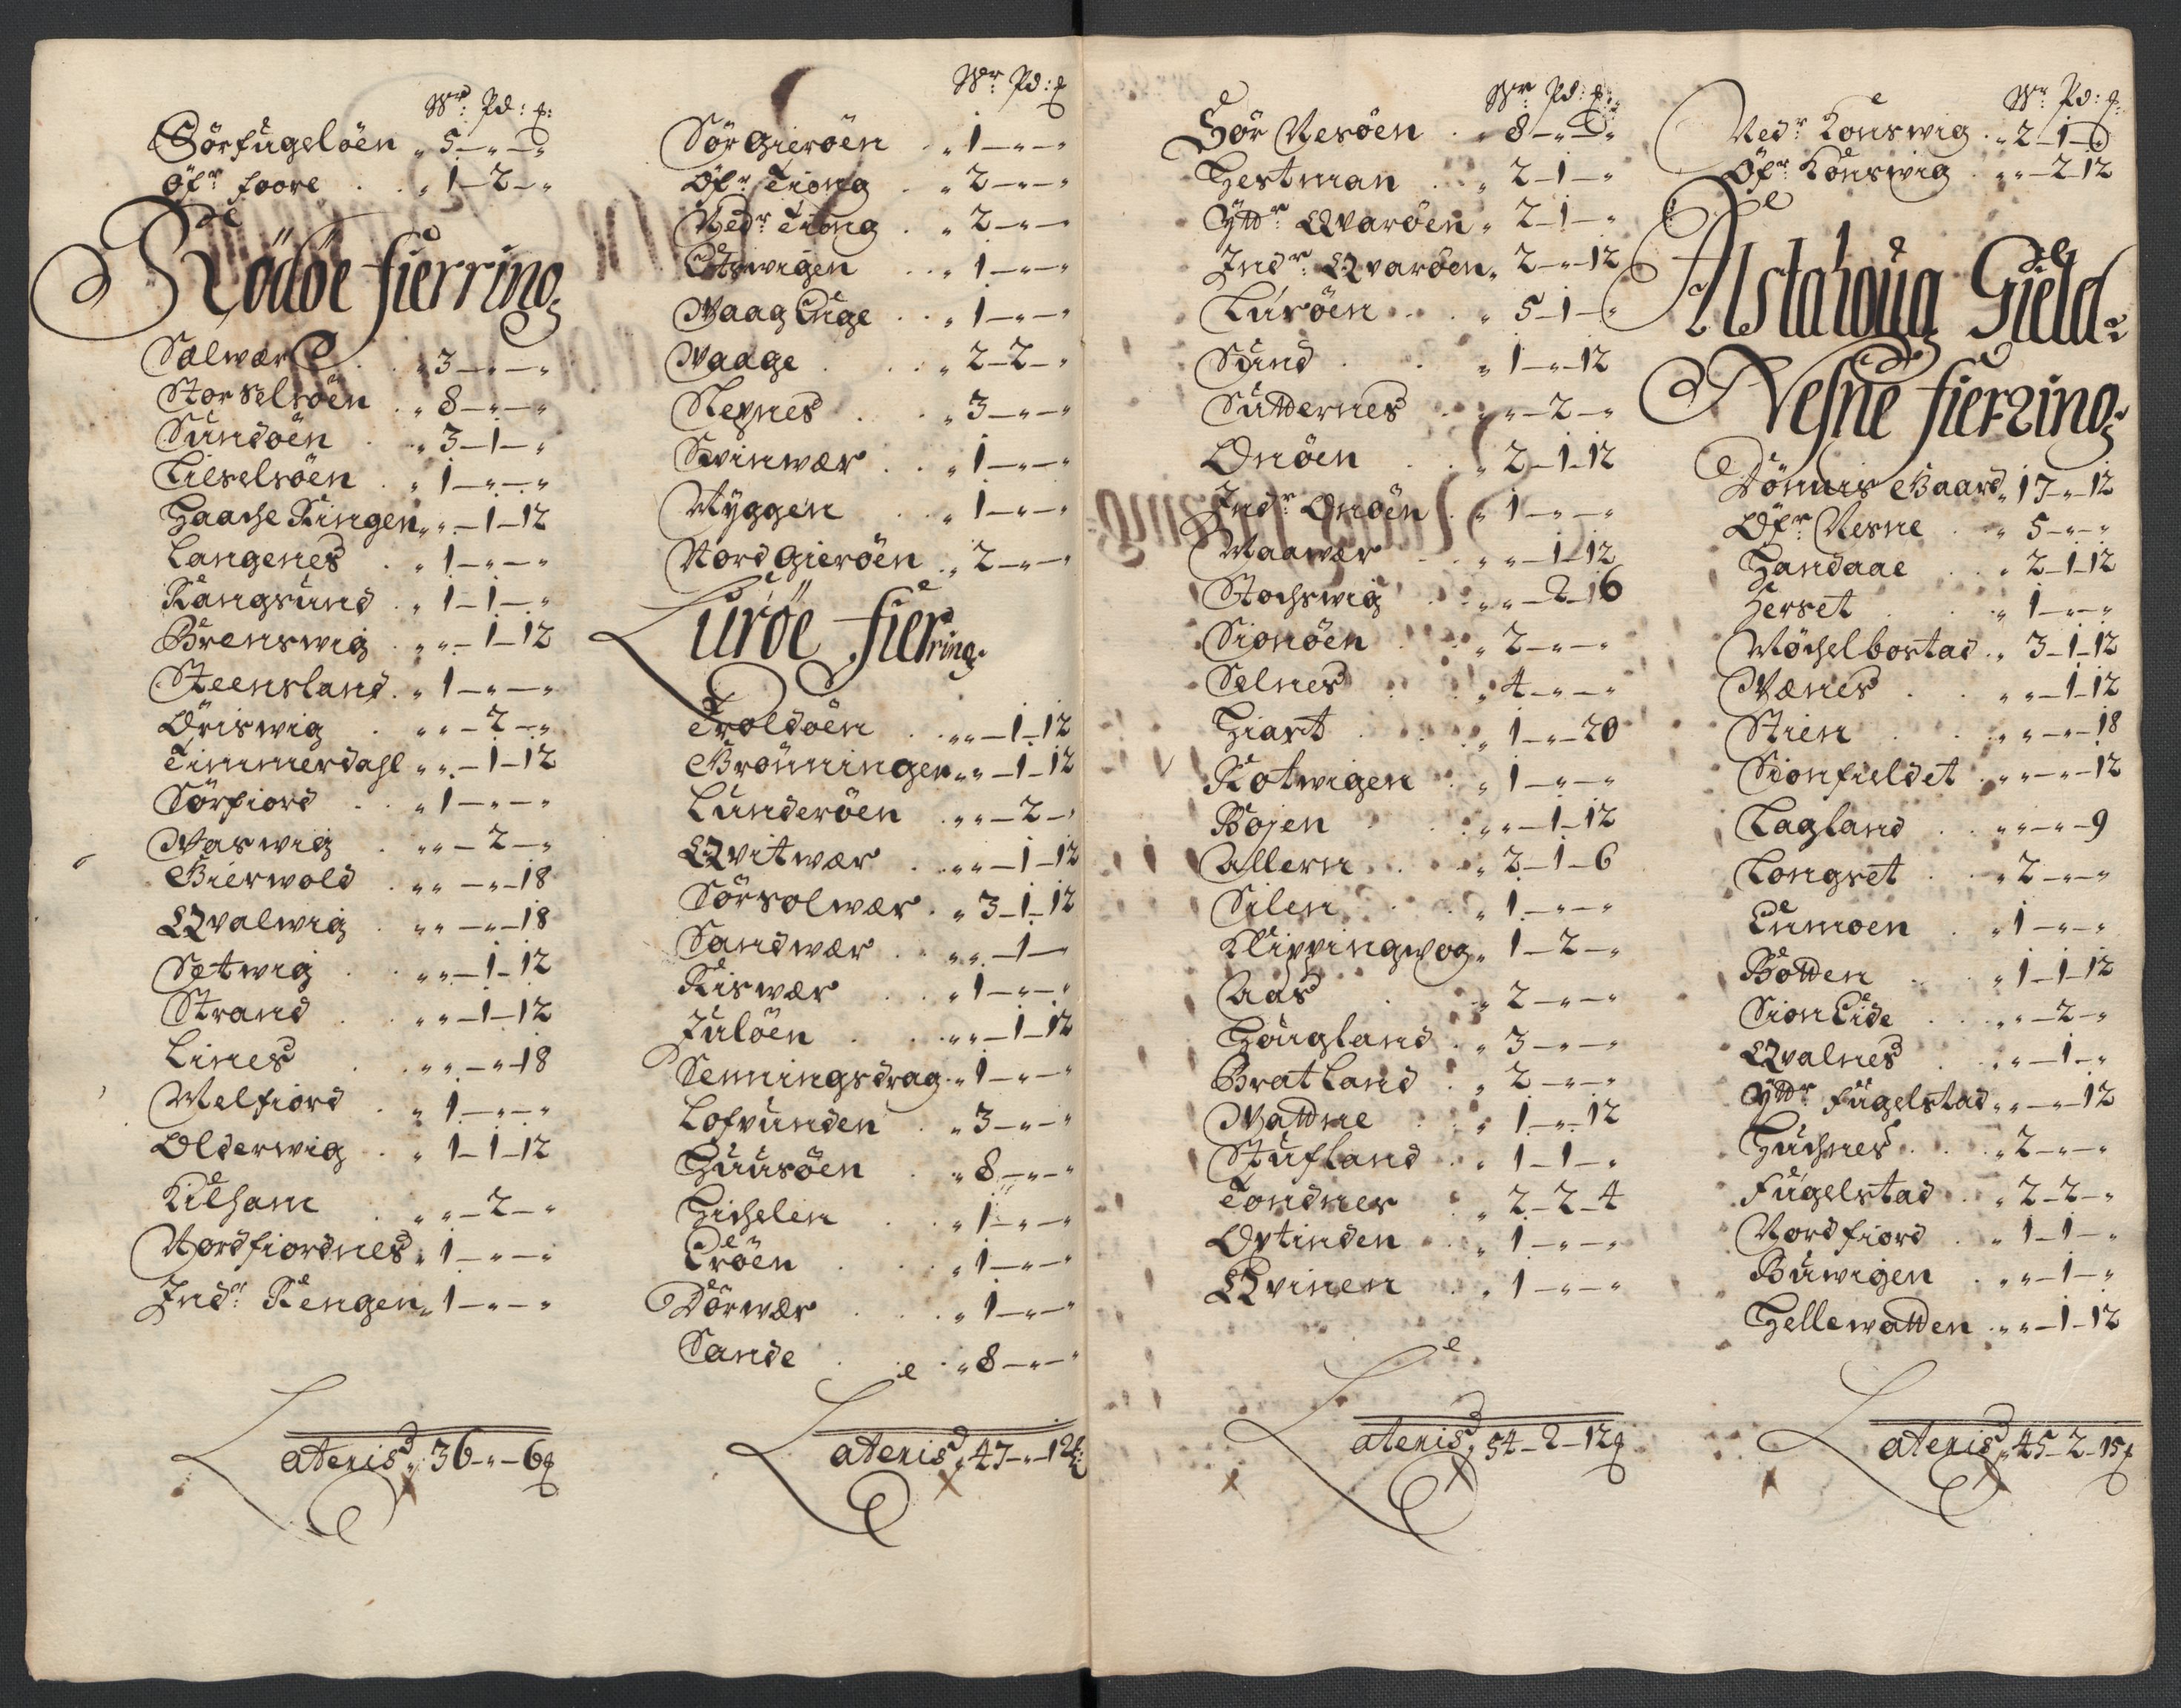 Wr: Pd: ℔:
Sörfugelöen „ 5 — „ — „
Öfr foore . . „ 1 — 2 — „
Rödöe fierring
Sælwær . „ 3 — „ — „
Storselsöen . „ 8 — „ — „
Sundöen . „ 3 — 1 — „
Lilselsöen . „ 1 — „ — „
Haache Ringen „ „ — 1 — 12
Langenes . „ 1 — „ — „
Rangsund . „ 1 — 1 — „
Brenswig . „ „ — 1 — 12
Steensland . „ 1 — „ — „
Öriswig . „ „ — 2 — „
Timmerdahl „ „ — 1 — 12
Sörfiord . . „ 1 — „ — „
Waswig . „ „ — 2 — „
Bierwold . „ „ — „ — 18
Qvalwig . „ „ — „ — 18
Setwig . „ „ — 1 — 12
Strand . „ „ — 1 — 12
Lines . „ „ — „ — 18
Melfiord . „ 1 — „ — „
Olderwig . „ 1 — 1 — 12
Kilham . „ „ — 2 — „
Nordfiordnes „ 1 — „ — „
Indr: Rengen „ 1 — „ — „
Lateris „ 36 — „ — 6 ℔
Wr: Pd: ℔
Sör Gieröen . „ 1 — „ — „
Öfr: Tiong . „ 2 — „ — „
Nedr Tiong . „ 2 — „ — „
Etswigen . . „ 1 — „ — „
Waag Enge . . „ 1 — „ — „
Waage . . „ 2 — 2 — „
Nepnes . „ 3 — „ — „
Svinwær . . „ 1 — „ — „
Myggen . „ 1 — „ — „
Nord Gieröen . „ 2 — „ — „
Luröe fierring
Troldöen . „ „ — 1 — 12
Brönningen „ „ — 1 — 12
Lunderöen . „ „ — 2 — „
Qvitwær . „ „ — 1 — 12
Sörsolwær . „ 3 — 1 — 12
Sandwær . „ „ — 1 —
Riswær . „ 1 — „ — „
Julöen . „ „ — 1 — 12
Senningsdrag . „ 1 — „ — „
Lofvunden . „ 3 — „ — „
Huusöen . „ 8 — „ — „
Hichelen . „ 1 — „ — „
Eröen . . „ 1 — „ — „
Dörwær . . „ 1 — „ — „
Sande . . „ 8 — „ — „
Lateris „ 47 — „ — 12 ℔
Wr Pd: ℔:
Sör Nesöen . „ 8 — „ — „
Hestman . „ 2 — 1 — „
Yttr Qvaröen „ 2 — 1 — „
Indr: Qvaröen „ 2 — „ — 12
Luröen . . „ 5 — 1 — „
Sund . . „ 1 — „ — 12
Sutternes . „ „ — 2 — „
Onöen . . „ 2 — 1 — 12
Indr Onöen . „ 1 — „ — „
Maawær . „ „ — 1 — 12
Stochswig . „ „ — 2 — 16
Sionöen . „ 2 — „ — „
Selnes . „ 4 — „ — „
Hiart . „ 1 — „ — 20
Kotwigen . „ 1 — „ — „
Bojen . „ „ — 1 — 12
Allern . „ 2 — 1 — 6
Silen . „ 1 — „ — „
Klippingwog „ 1 — 2 — „
Aas . „ 2 — „ — „
Hougland . „ 3 — „ — „
Bratland . „ 2 — „ — „
Wattne . „ 1 — „ — 12
Stufland . „ 1 — 1 — „
Tondnes . „ 2 — 2 — 4
Ostinden . „ 1 — „ — „
Qvinen . „ 1 — „ — „
Lateris „ 54 — 2 — 12 ℔
Wr: Pd: ℔:
Nedr: Konswig . „ 2 — 1 — „
Öfr Konswig . „ „ — 2 — 12
Alstahoug Gield:
Nesne fierring
Dönnis Gaard „ 17 — „ — 12
Öfr Nesne . „ 5 — „ — „
Handaae . „ 2 — 1 — 12
Herset . „ 1 — „ — „
Möchelbostad . „ 3 — 1 — 12
Wænes . „ „ — 1 — 12
Stien . „ „ — „ — 18
Sionfieldet . „ „ — „ — 12
Lagland . „ „ — „ — 9
Longset . „ 2 — „ — „
Eumoen . „ 1 — „ — „
Botten . . „ 1 — 1 — 12
Sion Eide . „ „ — 2 — „
Qvalnes . „ „ — 1 — „
Yttr Fugelstad „ „ — „ — 12
Huchnes . . „ 2 — „ — „
Fugelstad . „ 2 — 2 — „
Nordfiord . „ 1 — 1 — „
Buwigen . „ „ — 1 — „
Hellewatten . „ „ — 1 — 12
Lateris „ 45 — 2 — 15 ℔